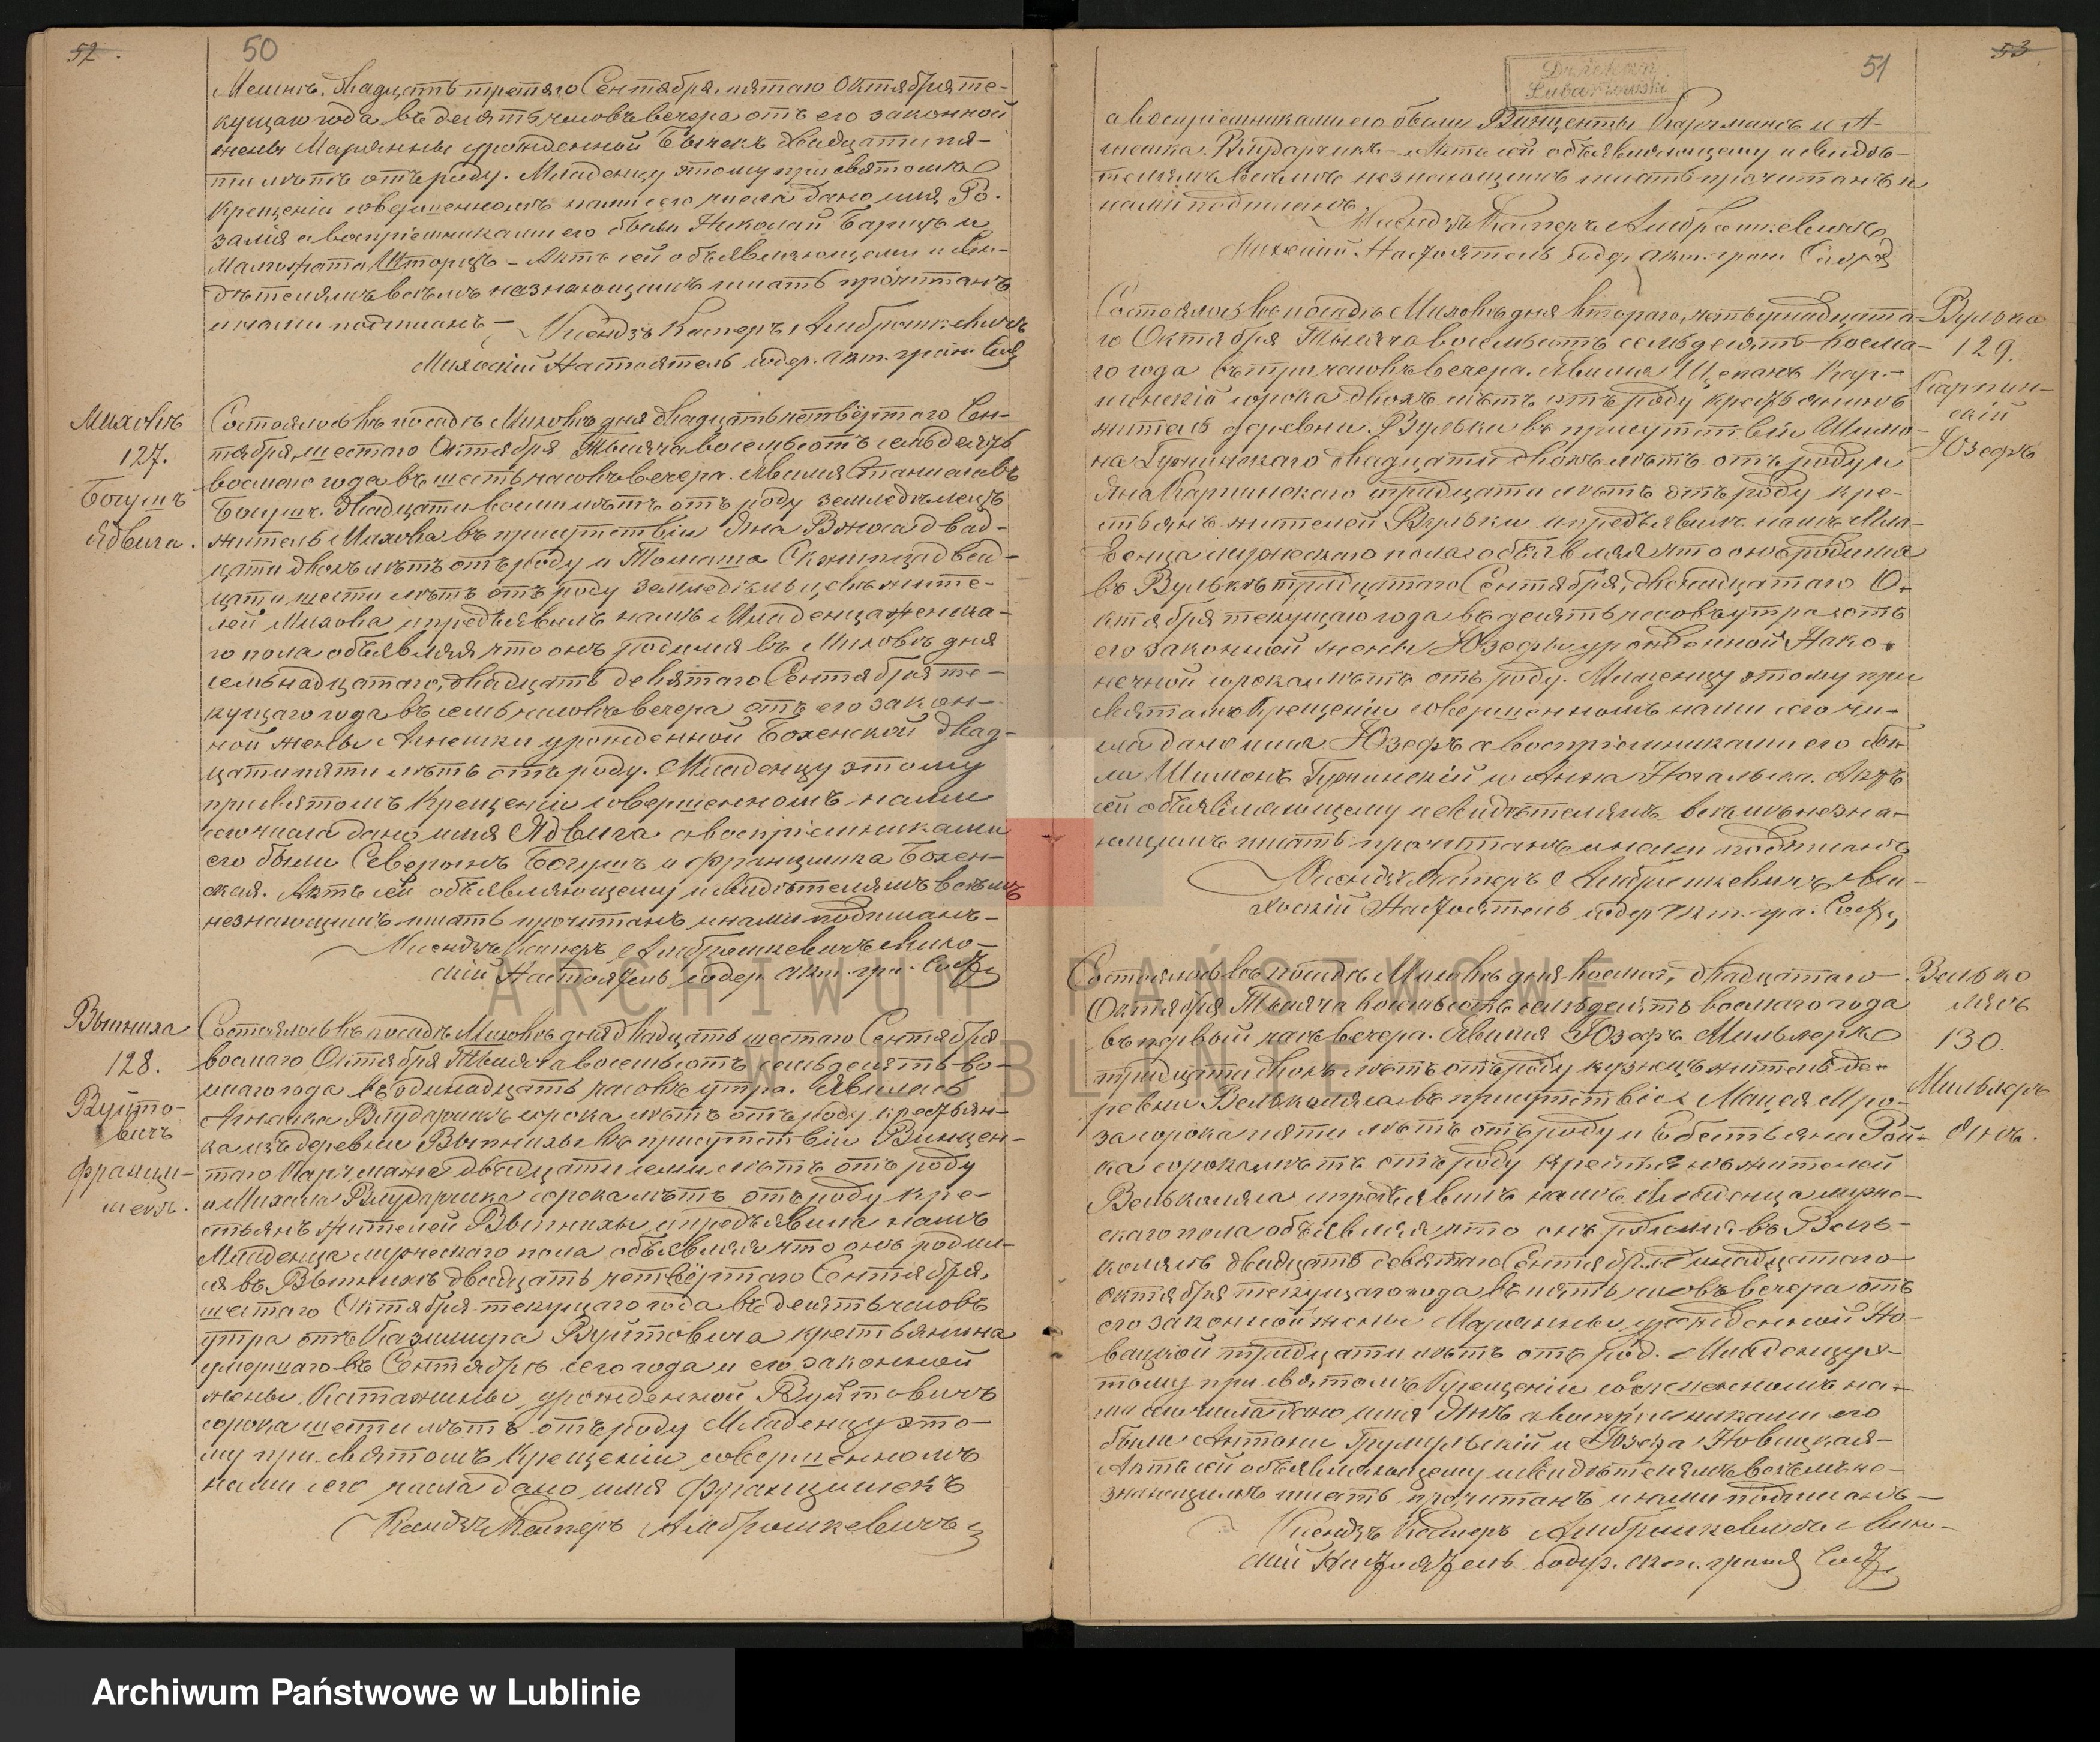 52.
50
Мешнъ. Двадцать третяго Сентября, пятаго Октября те-
кущаго года въ десять часовъ вечера отъ его законной
жены Марянны урожденной Бычекъ двадцати пя-
ти лѣтъ отъ роду. Младенцу этому при святомъ
Крещеніи совершенномъ нами сего числа дано имя Ро-
залія а воспріемниками его были Николай Барицъ и
Малгожата Шторцъ – Актъ сей объявляющему и сви-
дѣтелямъ всѣмъ незнающимъ писать прочитанъ
и нами подписанъ –
Ксендзъ Касперъ Амброшкевичъ
Миховскій Настоятель содер. акт. граж. Сост
Миховъ
127.
Богушъ
Ядвига.
Состоялось въ посадѣ Миховѣ дня двадцать четвёртаго Сен-
тября, шестаго Октября Тысяча восемьсотъ семьдесятъ
восмаго года въ шесть часовъ вечера. Явился Станиславъ
Богушъ двадцати восми лѣтъ отъ роду земледѣлецъ
житель Михова въ присутствіи Яна Вжоса двад-
цати двохъ лѣтъ отъ роду и Томаша Скжипца двад-
цати шести лѣтъ отъ роду земледѣльцевъ жите-
лей Михова и предъявилъ намъ Младенца женска-
го пола объявляя что онъ родился въ Миховѣ дня
семьнадцатаго, двадцать девятаго Сентября те-
кущаго года въ семь часовъ вечера отъ его закон-
ной жены Агнешки урожденной Бохенской двад-
цати пяти лѣтъ отъ роду. Младенцу этому
при святомъ Крещеніи совершенномъ нами
сего числа дано имя Ядвига а воспріемниками
его были Северынъ Богушъ и Францишка Бохен-
ская. Актъ сей объявляющему и свидѣтелямъ всѣмъ
незнающимъ писать прочитанъ и нами подписанъ –
Ксендзъ Касперъ Амброшкевичъ Михо-
скій Настоятель содер. акт. гра. Сост
Вытыха
128.
Вуйто-
вичъ
Францы-
шекъ.
Состоялось въ посадѣ Миховѣ дня двадцать шестаго Сентября
восмаго Октября Тысяча восемьсотъ семьдесятъ во-
смаго года въ одинадцать часовъ утра. Явилась
Агнешка Влударчикъ сорока лѣтъ отъ роду крестьян-
ка изъ деревни въ присутствіи Винцен-
таго Карчмажа двадцати семи лѣтъ отъ роду
и Михала Влударчика сорока лѣтъ отъ роду кре-
стьянъ жителей и предъявила намъ
Младенца мужескаго пола объявляя что онъ родил-
ся въ двадцать четвёртаго Сентября,
шестаго Октября текущаго года въ десять часовъ
утра отъ Казимира Вуйтовича крестьянина
умершаго въ Сентябрѣ сего года и его законной
жены Катажины урожденной Вуйтовичъ
сорока шести лѣтъ отъ роду Младенцу это-
му при святомъ Крещеніи совершенномъ
нами сего числа дано имя Францишекъ
Ксендзъ Касперъ Амброшкевичъ
51
53
а воспріемниками его были Винценты и А-
гнешка Влударчикъ – Актъ сей объявляющему и свидѣ-
телямъ всѣмъ незнающимъ писать прочитанъ и
нами подписанъ.
Ксендзъ Касперъ Амброшкевичъ
Миховскій Настоятель содер. акт. граж. Сост
Вулька
129.
Карпин-
скій
Юзефъ
Состоялось въ посадѣ Миховѣ дня втораго, четырнадцата-
го Октября Тысяча восемьсотъ семьдесятъ восма-
го года въ три часовъ вечера. Явился Щепанъ Кар-
пинскій сорока двохъ лѣтъ отъ роду крестьянинъ
житель деревни Вульки въ присутствіи Шимо-
на двадцати двохъ лѣтъ отъ роду и
Яна Карпинскаго тридцати лѣтъ отъ роду кре-
стьянъ жителей Вульки и предъявилъ намъ Мла-
денца мужескаго пола объявляя что онъ родился
въ Вулькѣ тридцатаго Сентября, двенадцатаго О-
ктября текущаго года въ десять часовъ утра отъ
его законной жены Юзефы урожденной Нако-
нечной сорока лѣтъ отъ роду. Младенцу этому при
святомъ Крещеніи совершенномъ нами сего чи-
сла дано имя Юзефъ а воспріемниками его бы-
ли Шимонъ и Анна Ногальска. Актъ
сей объявляющему и свидѣтелямъ всѣмъ незна-
ющимъ писать прочитанъ и нами подписанъ
Ксендзъ Касперъ Амброшкевичъ Ми-
ховскій Настоятель содер. акт. гра. Сост
Велько
лясъ
130.
Мильлеръ
Янъ.
Состоялось въ посадѣ Миховѣ дня восмаго, двадцатаго
Октября Тысяча восемьсотъ семьдесятъ восмаго года
въ первый часъ вечера. Явился Юзефъ Мильлеръ
тридцати двохъ лѣтъ отъ роду кузнецъ житель де-
ревни Велькаляса въ присутствіи Мацея Мро-
за сорока пяти лѣтъ отъ роду и Себестьяна Рай-
ка сорока лѣтъ отъ роду крестьянъ жителей
Велькаляса и предъявилъ намъ Младенца муже-
скаго пола объявляя что онъ родился въ Вель-
колясѣ двадцать девятаго Сентября одинадцатаго
Октября текущаго года въ пять часовъ вечера отъ
его законной жены Марянны урожденной Но-
вацкой тридцати лѣтъ отъ род. Младенцу э-
тому при святомъ Крещеніи совершенномъ на-
ми сего числа дано имя Янъ а воспріемниками его
были Антони и Юзефа Новицкая –
Актъ сей объявляющему и свидѣтелямъ всѣмъ не-
знающимъ писать прочитанъ и нами подписанъ –
Ксендзъ Касперъ Амброшкевичъ Михо-
скій Настоятель содер. акт. гражд Сост
ARCHIWUM PAŃSTWOWE
W LUBLINIE
Archiwum Państwowe w Lublinie